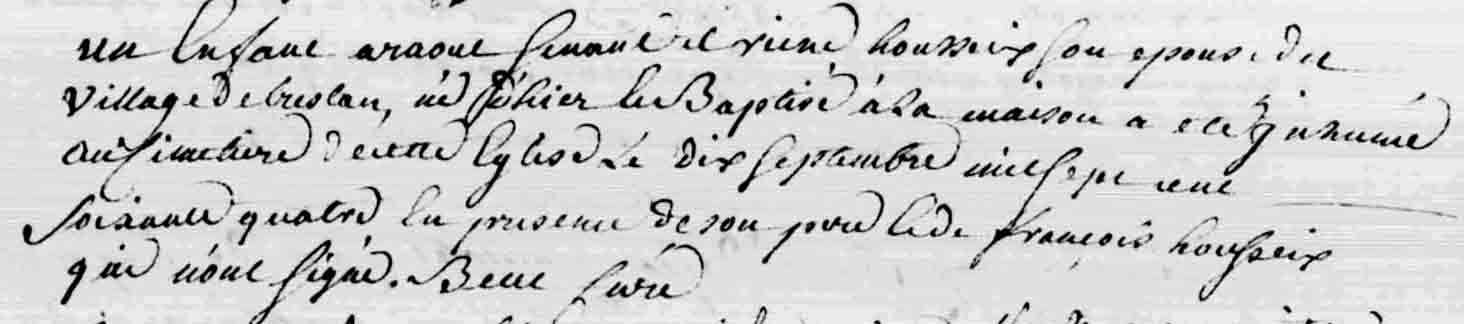 un Enfant a raoul Simané et viene housseix son epouse du
village de breslau, né d'hier le Baptisé à la maison a eté inhumé
au Cimetiere de cette Eglise Le dix septembre mil sept cent
soixante quatre En presence de son pere Et de françois housseix
qui n'ont signé. Beue Curé